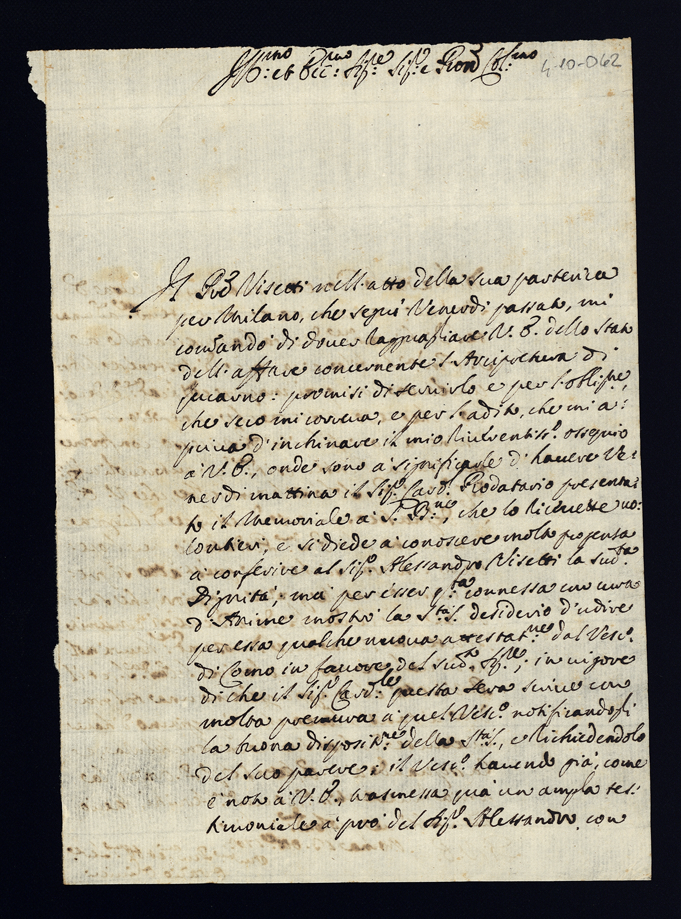 Ill.mo et Ecc.mo Sig.re Sig.r e Pron Col.mo
4-10-062
Il Pre Visetti nell'atto della sua partenza
per Milano, che seguì Venerdì passato, mi
comandò di dover ragguagliare V. E. dello stato
dell'affare concernente l'Arcipretura di
promisi di servirlo e per l'obligne,
che seco mi correva, e per l'adito, che mi a=
priva d'inchinare il mio Riverentiss.o ossequio
à V. E., onde sono à significarle d'havere Ve=
nerdì mattina il Sig.r Card. Prodatario presenta=
to il Memoriale à S. B.ne, che lo Ricevette vo=
lontieri, e si diede à conoscere molto propensa
à conferire al Sig.r Alessandro Visetti la sud.ta
Dignità; mà per esser q.ta connessa con cura
d'Anime mostrò la S.tà S. desiderio d'udire
per essa qualche nuova attestat.ne dal Vesc.o
di Como in favore del sud.o Sig.re; in vigore
di che il Sig.r Card.le questa sera scrive con
molta premura à quel Vesc.o notificandogli
la buona disposit.ne della S.tà S., e Richiedendolo
del suo parere; il Vesc.o havendo già, come
è noto à V. E., trasmessa quà un ampla tes=
timoniale à prò del Sig.r Alessandro con